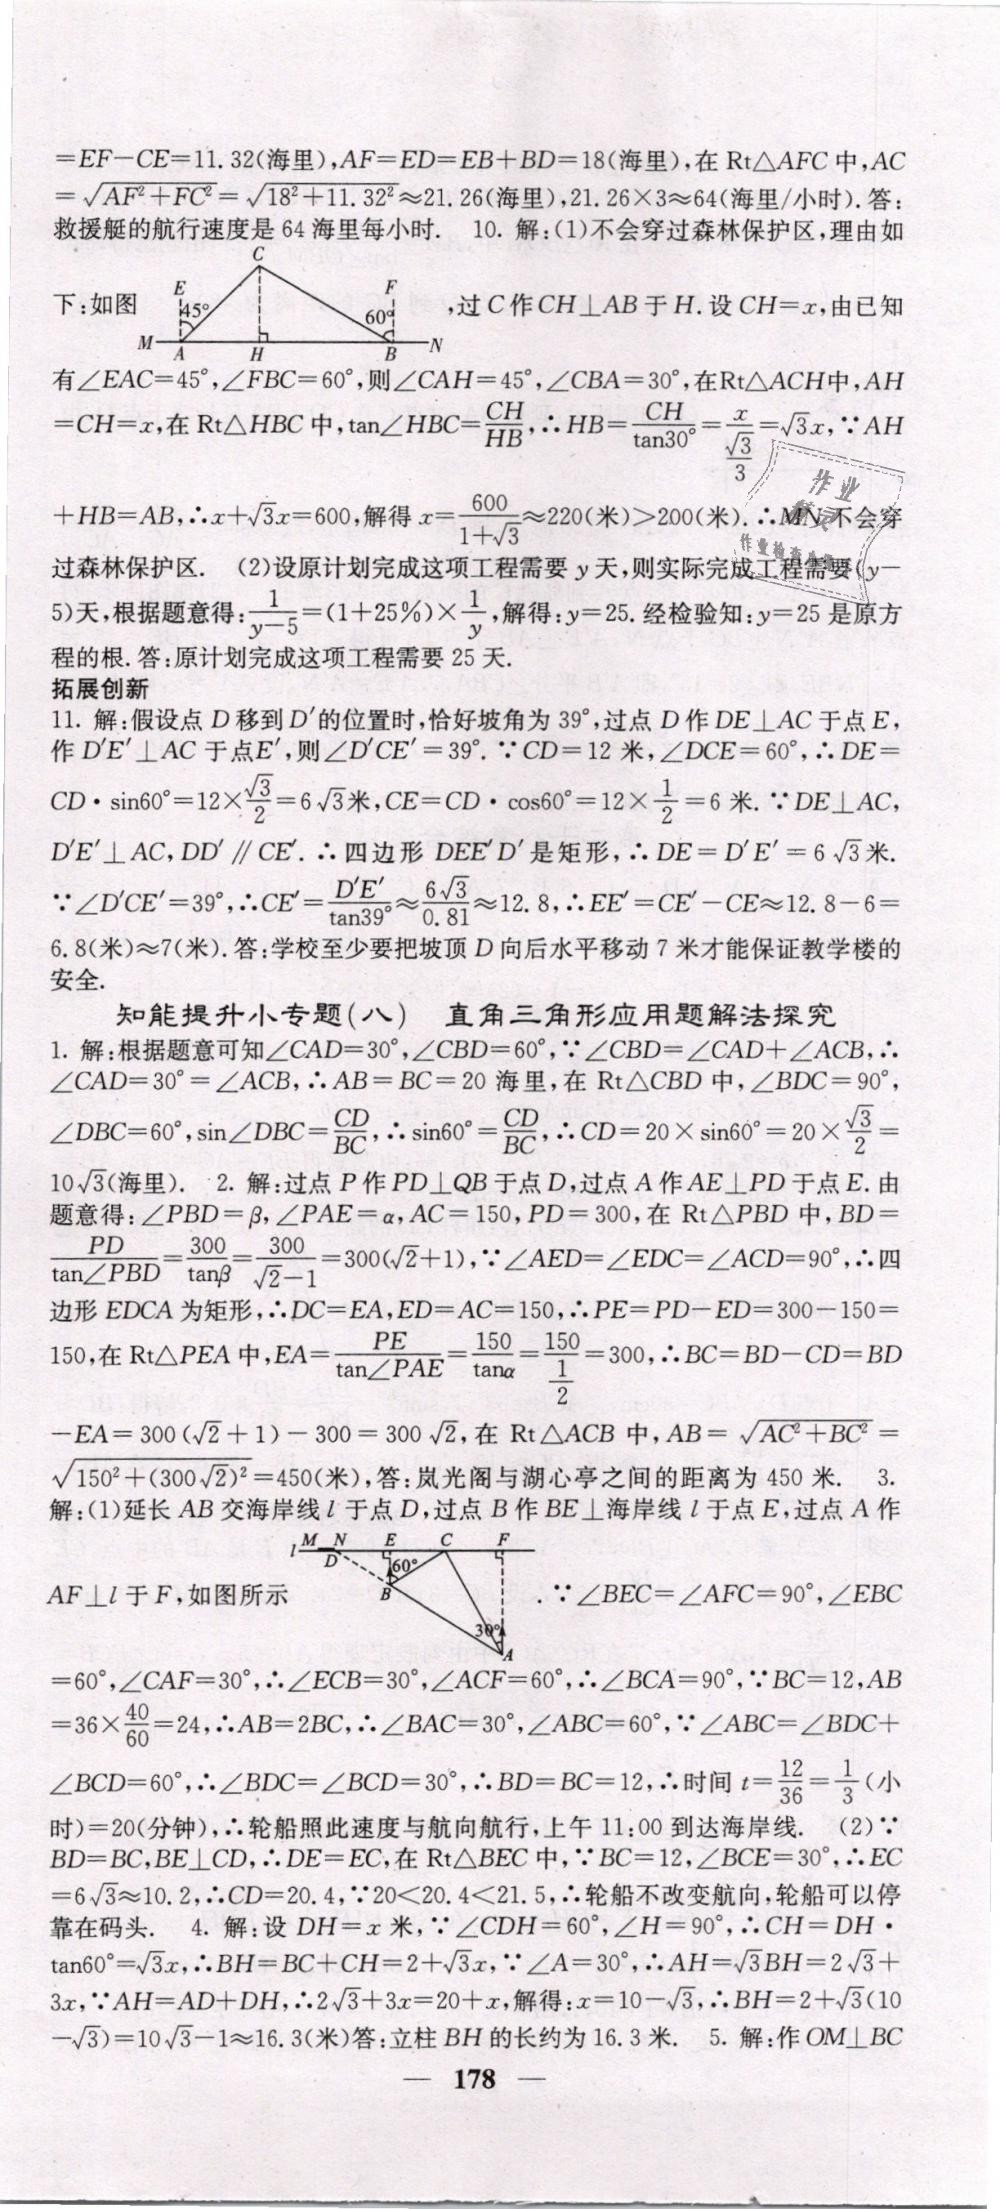 =EF−CE=11.32(海里),AF=ED=EB+BD=18(海里),在 Rt△AFC 中,AC
=√(AF²+FC²)=√(18²+11.32²)≈21.26(海里),21.26×3≈64(海里/小时).答:
救援艇的航行速度是 64 海里每小时. 10. 解:(1)不会穿过森林保护区,理由如
下:如图
C
E
F
45°
60°
M
A
H
B
N
,过 C 作 CH⊥AB 于 H.设 CH=x,由已知
有∠EAC=45°,∠FBC=60°,则∠CAH=45°,∠CBA=30°,在Rt△ACH中,AH
=CH=x,在 Rt△HBC 中,tan∠HBC=CH/HB,∴HB=CH/tan30°=x/(√3/3)=√3x,∵AH
+HB=AB,∴x+√3x=600,解得 x=600/(1+√3)≈220(米)>200(米).∴MN 不会穿
过森林保护区. (2)设原计划完成这项工程需要 y 天,则实际完成工程需要(y−
5)天,根据题意得:1/(y−5)=(1+25%)×1/y,解得:y=25.经检验知:y=25 是原方
程的根.答:原计划完成这项工程需要 25 天.
拓展创新
11. 解:假设点 D 移到 D′的位置时,恰好坡角为 39°,过点 D 作 DE⊥AC 于点 E,
作 D′E′⊥AC 于点E′,则∠D′CE′=39°.∵CD=12 米,∠DCE=60°,∴DE=
CD·sin60°=12×√3/2=6√3米,CE=CD·cos60°=12×1/2=6 米.∵DE⊥AC,
D′E′⊥AC,DD′∥CE′.∴四边形 DEE′D′是矩形,∴DE=D′E′=6√3米.
∵∠D′CE′=39°,∴CE′=D′E′/tan39°≈6√3/0.81≈12.8,∴EE′=CE′−CE≈12.8−6=
6.8(米)≈7(米).答:学校至少要把坡顶 D 向后水平移动 7 米才能保证教学楼的
安全.
知能提升小专题(八) 直角三角形应用题解法探究
1. 解:根据题意可知∠CAD=30°,∠CBD=60°,∵∠CBD=∠CAD+∠ACB,∴
∠CAD=30°=∠ACB,∴AB=BC=20 海里,在 Rt△CBD 中,∠BDC=90°,
∠DBC=60°,sin∠DBC=CD/BC,∴sin60°=CD/BC,∴CD=20×sin60°=20×√3/2=
10√3(海里). 2. 解:过点 P 作 PD⊥QB 于点 D,过点 A 作 AE⊥PD 于点 E.由
题意得:∠PBD=β,∠PAE=α,AC=150,PD=300,在 Rt△PBD 中,BD=
PD/tan∠PBD=300/tanβ=300/(√2−1)=300(√2+1),∵∠AED=∠EDC=∠ACD=90°,∴四
边形 EDCA 为矩形,∴DC=EA,ED=AC=150,∴PE=PD−ED=300−150=
150,在 Rt△PEA 中,EA=PE/tan∠PAE=150/tanα=150/(1/2)=300,∴BC=BD−CD=BD
−EA=300(√2+1)−300=300√2,在 Rt△ACB 中,AB=√(AC²+BC²)=
√(150²+(300√2)²)=450(米),答:岚光阁与湖心亭之间的距离为 450 米. 3.
解:(1)延长 AB 交海岸线 l 于点 D,过点 B 作 BE⊥海岸线 l 于点 E,过点 A 作
AF⊥l 于 F,如图所示
l
M
N
D
E
C
F
60°
B
30°
A
.∵∠BEC=∠AFC=90°,∠EBC
=60°,∠CAF=30°,∴∠ECB=30°,∠ACF=60°,∴∠BCA=90°,∵BC=12,AB
=36×40/60=24,∴AB=2BC,∴∠BAC=30°,∠ABC=60°,∵∠ABC=∠BDC+
∠BCD=60°,∴∠BDC=∠BCD=30°,∴BD=BC=12,∴时间 t=12/36=1/3(小
时)=20(分钟),∴轮船照此速度与航向航行,上午 11:00 到达海岸线. (2)∵
BD=BC,BE⊥CD,∴DE=EC,在 Rt△BEC 中,∵BC=12,∠BCE=30°,∴EC
=6√3≈10.2,∴CD=20.4,∵20<20.4<21.5,∴轮船不改变航向,轮船可以停
靠在码头. 4. 解:设 DH=x 米,∵∠CDH=60°,∠H=90°,∴CH=DH·
tan60°=√3x,∴BH=BC+CH=2+√3x,∵∠A=30°,∴AH=√3BH=2√3+
3x,∵AH=AD+DH,∴2√3+3x=20+x,解得:x=10−√3,∴BH=2+√3(10
−√3)=10√3−1≈16.3(米)答:立柱 BH 的长约为 16.3 米. 5. 解:作 OM⊥BC
— 178 —
作业